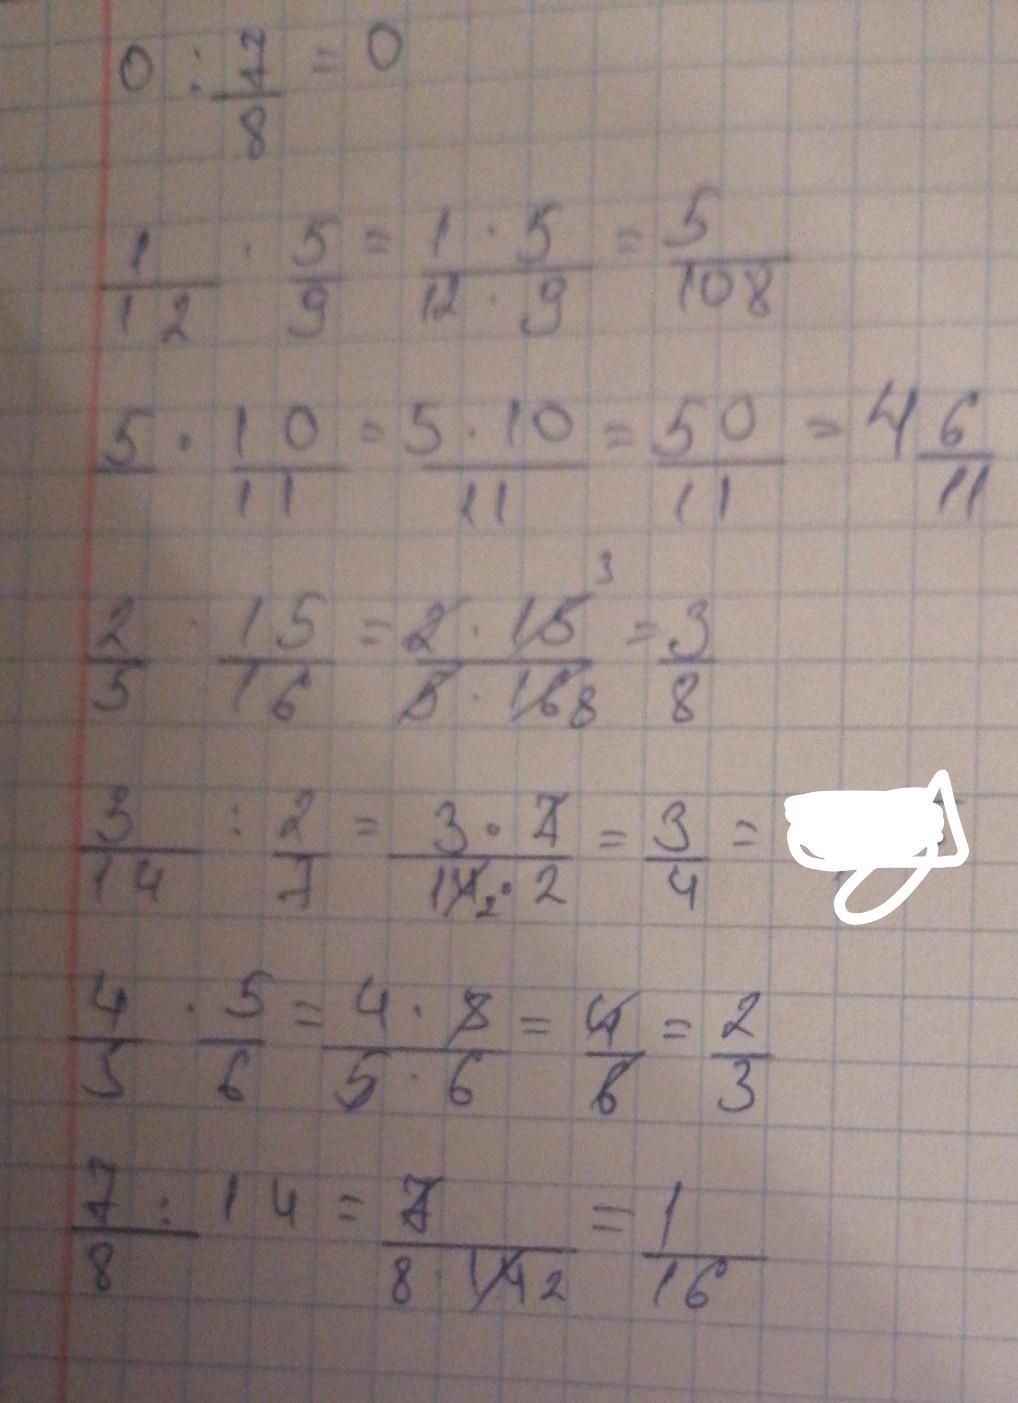 0 : 7/8 = 0
1/12 · 5/9 = 1 · 5/12 · 9 = 5/108
5 · 10/11 = 5 · 10/11 = 50/11 = 4 6/11
2/5 · 15/16 = 2 · 15 3/5 · 16 8 = 3/8
3/14 : 2/7 = 3 · 7/14 2 · 2 = 3/4 =
4/5 · 5/6 = 4 · 5/5 · 6 = 4/6 = 2/3
7/8 : 14 = 7/8 · 14 2 = 1/16